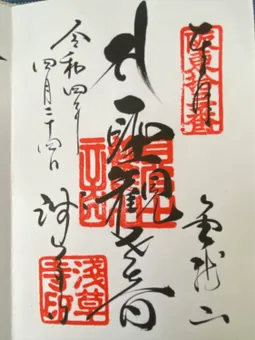 坂東拾三番
奉拝
金龍山
聖観世音
令和四年
四月二十四日
浅草寺
淺草寺印